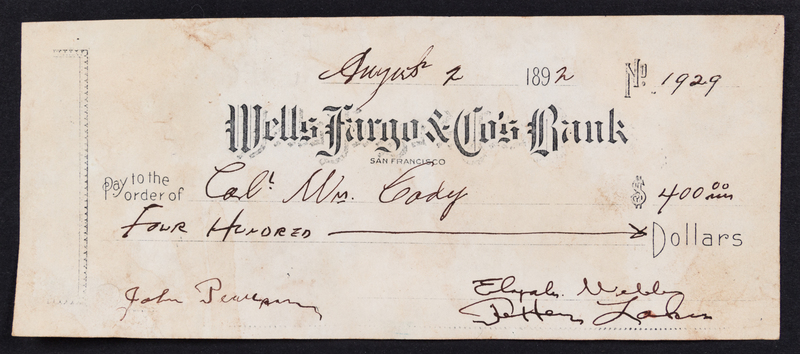 August 2 1892 No. 1929
Wells Fargo & Co's Bank
SAN FRANCISCO
Pay to the order of Col. Wm. Cody $ 400 00
FOUR HUNDRED Dollars
John
Elijah